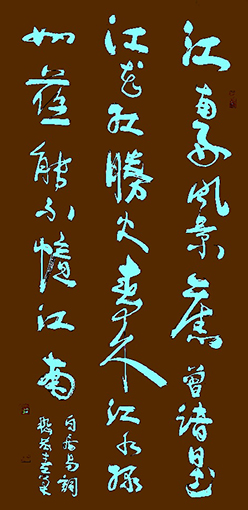 江南好風景舊曾諳日出
江花紅勝火春来江水綠
如藍能不憶江南
白居易詞